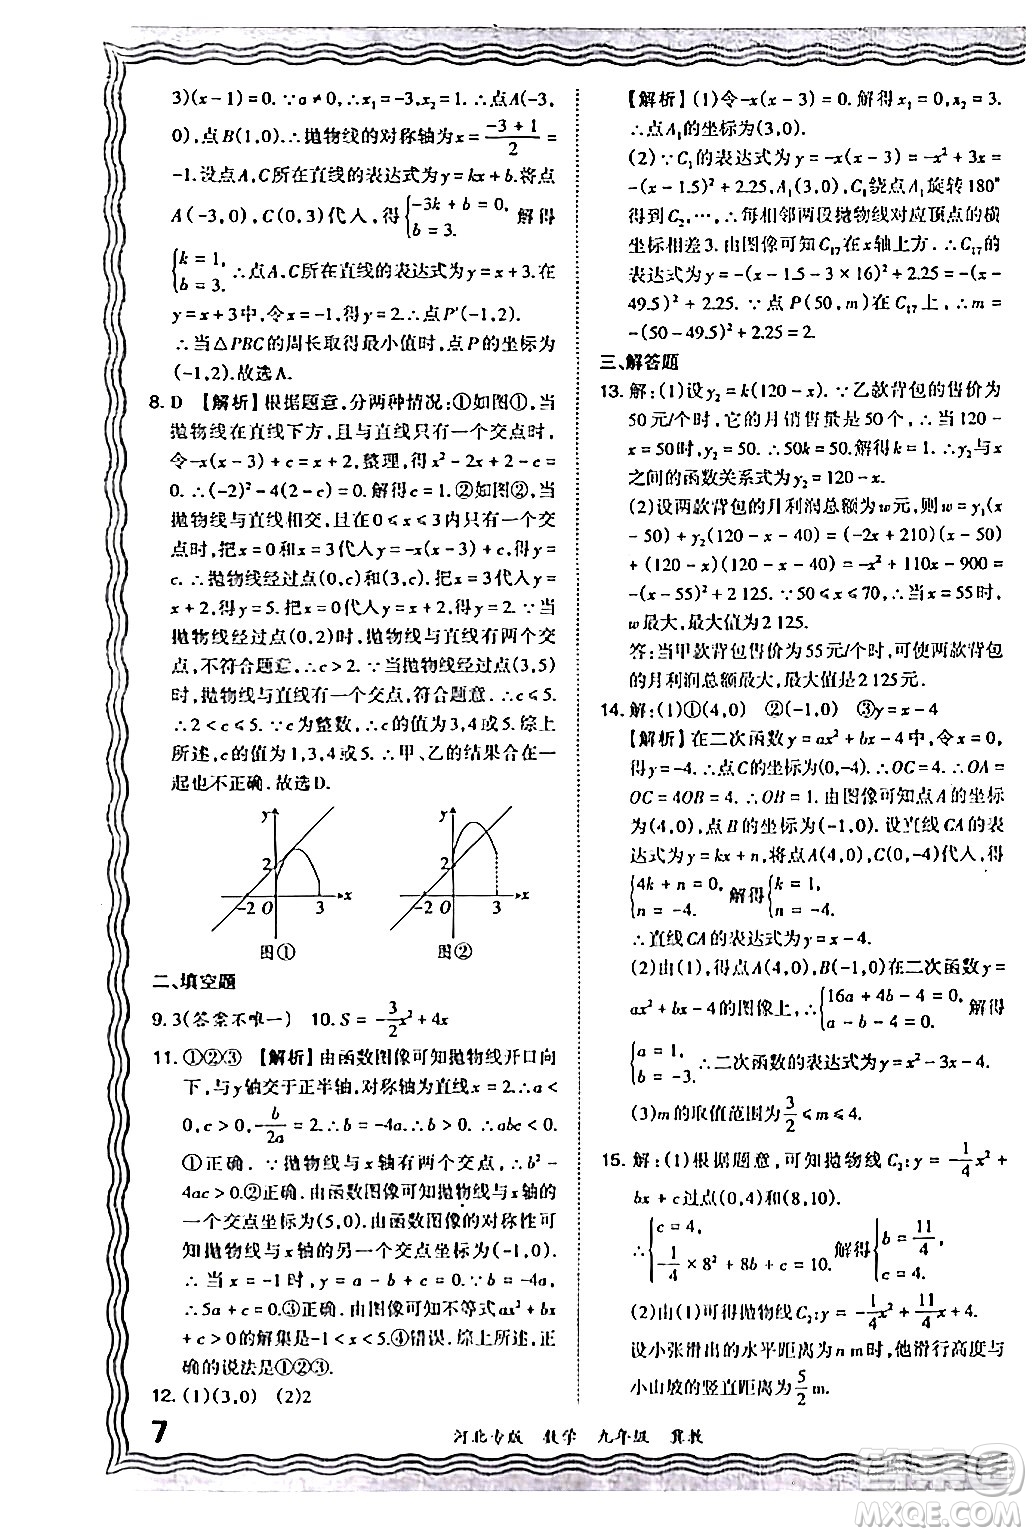 3)(x-1)=0.∵a≠0,∴x₁=-3,x₂=1.∴点A(-3,
0),点B(1,0).∴抛物线的对称轴为x=\frac{-3+1}{2}=
-1.设点A,C所在直线的表达式为y=kx+b,将点
A(-3,0),C(0,3)代入,得{-3k+b=0, b=3. 解得
{k=1, b=3. ∴点A,C所在直线的表达式为y=x+3.在
y=x+3中,令x=-1,得y=2.∴点P'(-1,2).
∴当△PBC的周长取得最小值时,点P的坐标为
(-1,2).故选A.
8. D 【解析】根据题意,分两种情况:①如图①,当
抛物线在直线下方,且与直线只有一个交点时,
令-x(x-3)+c=x+2,整理,得x²-2x+2-c=
0.∴(-2)²-4(2-c)=0.解得c=1.②如图②,当
抛物线与直线相交,且在0≤x≤3内只有一个交
点时,把x=0和x=3代入y=-x(x-3)+c,得y=
c.∴抛物线经过点(0,c)和(3,c).把x=3代入y=
x+2,得y=5.∴直线经过点(0,2)和(3,5).当
抛物线经过点(0,2)时,抛物线与直线有两个交
点,不符合题意,∴c>2.∵当抛物线经过点(3,5)
时,抛物线与直线有一个交点,符合题意.∴c≤5.
∴2<c≤5.∵c为整数,∴c的值为3,4或5.综上
所述,c的值为1,3,4或5.∴甲、乙的结果合在一
起也不正确.故选D.
y
2
-2 O 3 x
图①
y
2
-2 O 3 x
图②
二、填空题
9. 3(答案不唯一) 10. S=-\frac{3}{2}x²+4x
11. ①②③ 【解析】由函数图像可知抛物线开口向
下,与y轴交于正半轴,对称轴为直线x=2,∴a<
0,c>0,-\frac{b}{2a}=2.∴b=-4a.∴b>0.∴abc<0.
①正确.∵抛物线与x轴有两个交点,∴b²-
4ac>0.②正确.由函数图像可知抛物线与x轴的
一个交点坐标为(5,0).由函数图像的对称性可
知抛物线与x轴的另一个交点坐标为(-1,0).
∴当x=-1时,a-b+c=0.∵b=-4a,
∴5a+c=0.③正确.由图像可知不等式ax²+bx
+c>0的解集是-1<x<5.④错误.综上所述,正
确的说法是①②③.
12. (1)(3,0) (2)2
【解析】(1)令-x(x-3)=0.解得x₁=0,x₂=3.
∴点A₁的坐标为(3,0).
(2)∵C₁的表达式为y=-x(x-3)=-x²+3x=
-(x-1.5)²+2.25,A₁(3,0),C₁绕点A₁旋转180°
得到C₂,…,∴每相邻两段抛物线对应顶点的横
坐标相差3.由图像可知C₁₇在x轴上方.∴C₁₇的
表达式为y=-(x-1.5-3×16)²+2.25=-(x-
49.5)²+2.25.∵点P(50,m)在C₁₇上,∴m=
-(50-49.5)²+2.25=2.
三、解答题
13. 解:(1)设y₂=k(120-x).∵乙款背包的售价为
50元/个时,它的月销售量是50个,∴当120-
x=50时,y₂=50.∴50k=50.解得k=1.∴y₂与x
之间的函数关系式为y₂=120-x.
(2)设两款背包的月利润总额为w元,则w=y₁(x
-50)+y₂(120-x-50)=(-2x+210)(x-50)
+(120-x)(120-x-50)=-x²+110x-900=
-(x-55)²+2 125.∵50≤x≤70,∴当x=55时,
w最大,最大值为2 125.
答:当甲款背包售价为55元/个时,可使两款背包
的月利润总额最大,最大值是2 125元.
14. 解:(1)①(4,0) ②(-1,0) ③y=x-4
【解析】在二次函数y=ax²+bx-4中,令x=0,
得y=-4.∴点C的坐标为(0,-4).∴OC=4.∵OA=
OC=4OB=4.∴OB=1.由图像可知点A的坐标
为(4,0),点B的坐标为(-1,0).设直线CA的表
达式为y=kx+n,将点A(4,0),C(0,-4)代入,得
{4k+n=0, n=-4. 解得{k=1, n=-4.
∴直线CA的表达式为y=x-4.
(2)由(1),得点A(4,0),B(-1,0)在二次函数y=
ax²+bx-4的图像上,∴{16a+4b-4=0, a-b-4=0. 解得
{a=1, b=-3. ∴二次函数的表达式为y=x²-3x-4.
(3)m的取值范围为\frac{3}{2}≤m≤4.
15. 解:(1)根据题意,可知抛物线C₂:y=-\frac{1}{4}x²+
bx+c过点(0,4)和(8,10).
∴{c=4, -\frac{1}{4}×8²+8b+c=10. 解得{b=\frac{11}{4}, c=4.
(2)由(1)可得抛物线C₂:y=-\frac{1}{4}x²+\frac{11}{4}x+4.
设小张滑出的水平距离为n m时,他滑行高度与
小山坡的竖直距离为\frac{5}{2}m.
7
河北专版 数学 九年级 冀教
答案圈
MXQE.COM